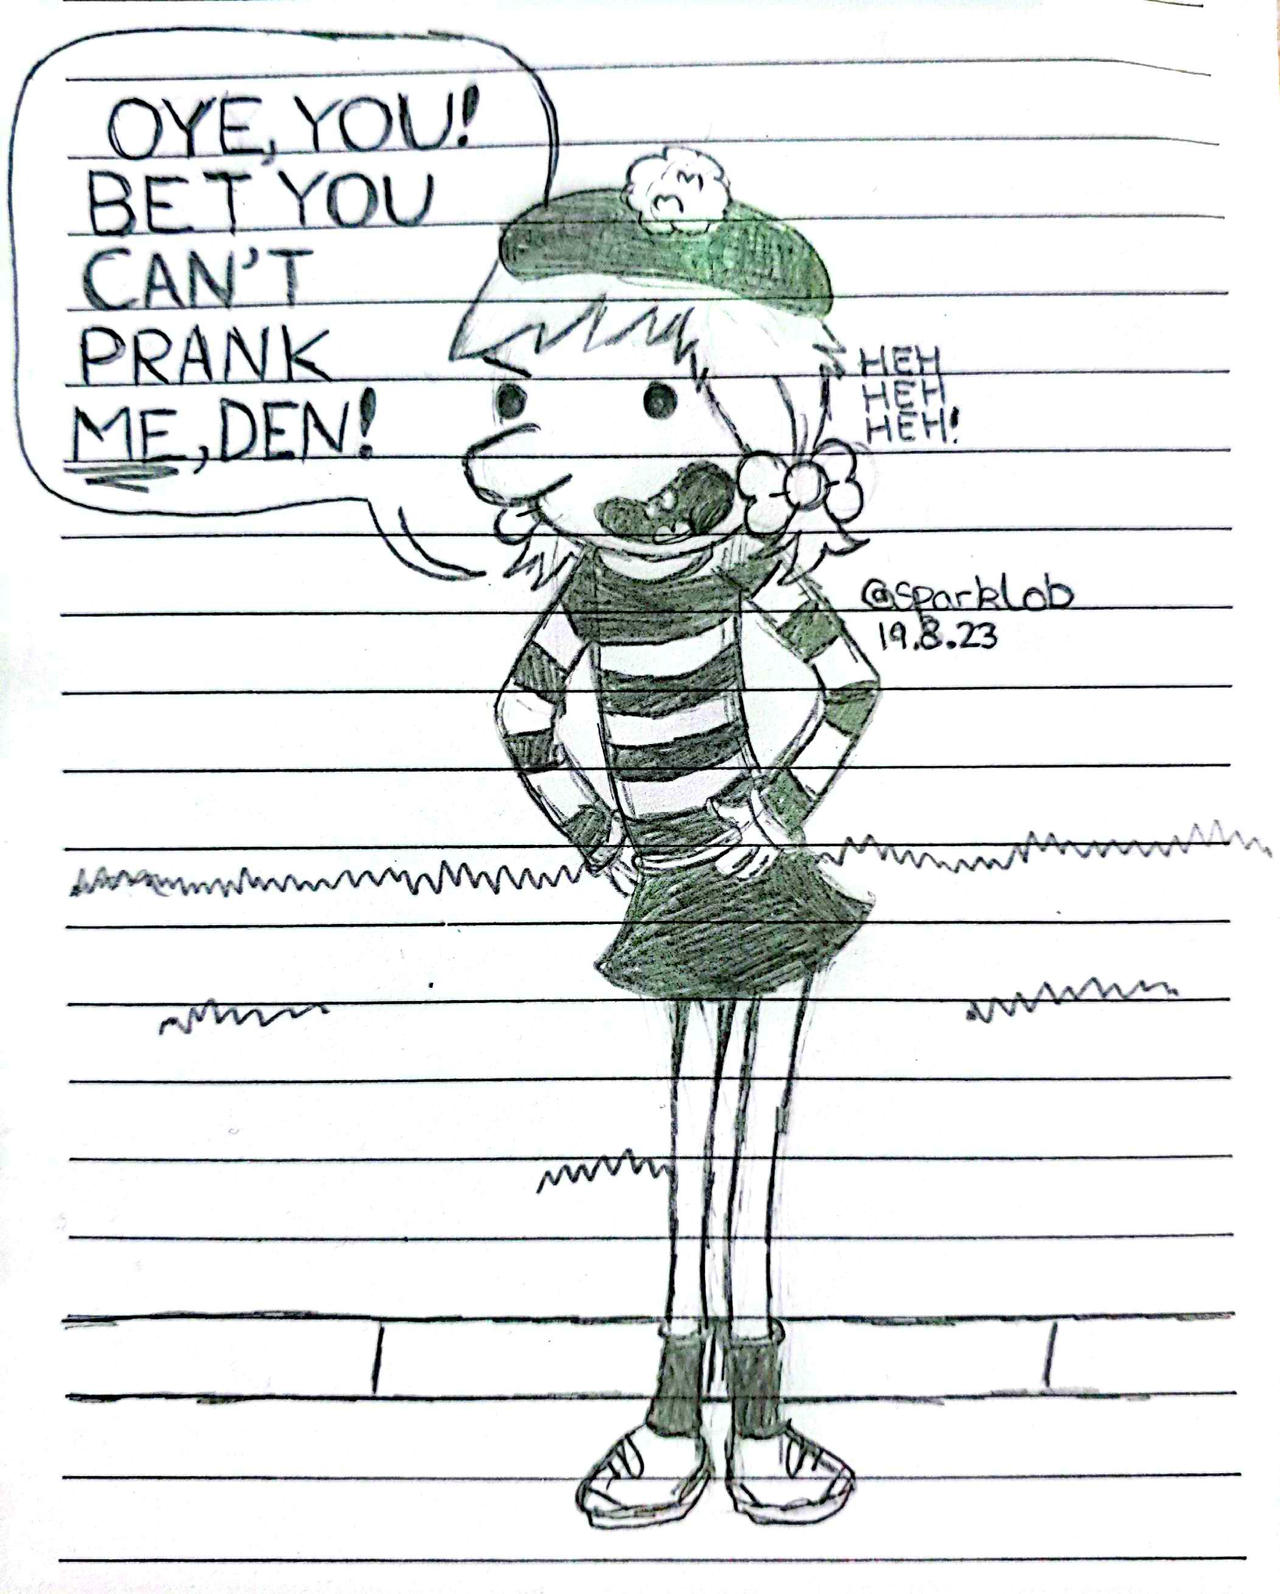 OYE, YOU!
BET YOU
CAN'T
PRANK
ME, DEN!
HEH
HEH
HEH!
@sparklob
19.8.23